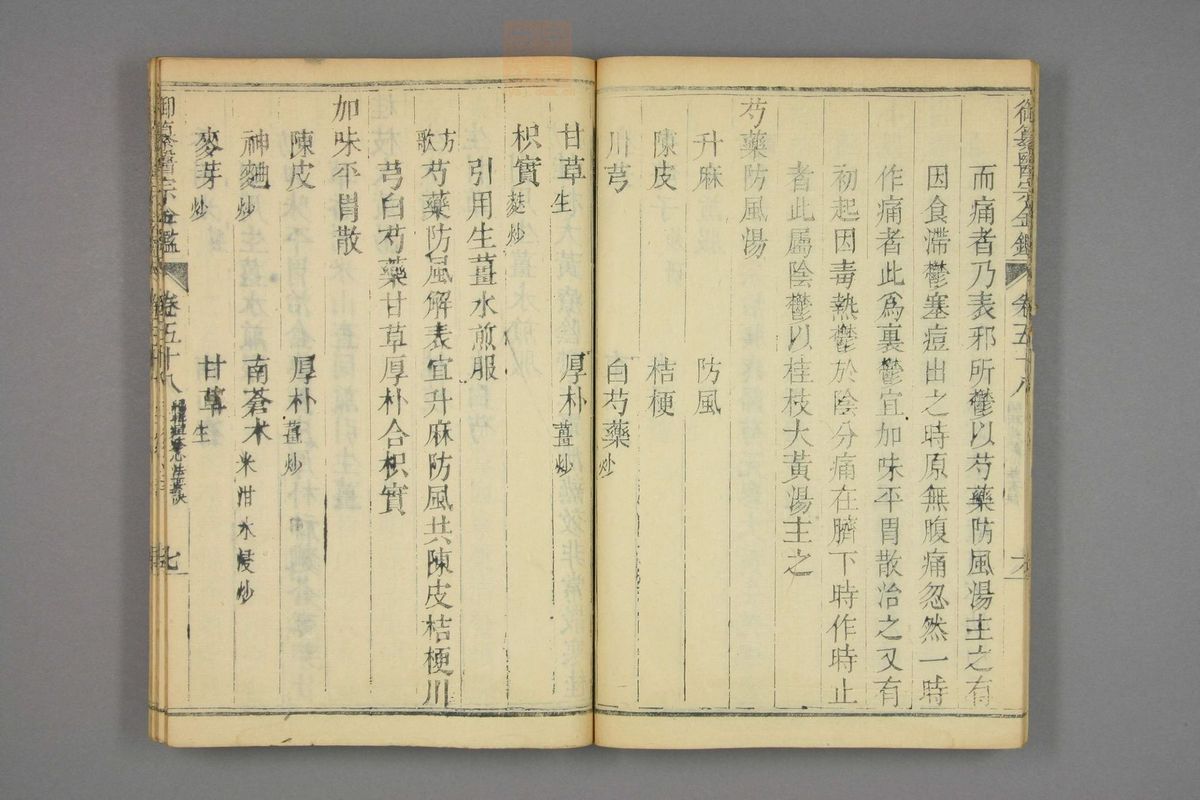 御纂醫宗金鑑 卷五十八 六
而痛者乃表邪所鬱以芍藥防風湯主之有
因食滯鬱塞痘出之時原無腹痛忽然一時
作痛者此爲裏鬱宜加味平胃散治之又有
初起因毒熱鬱於陰分痛在臍下時作時止
者此屬陰鬱以桂枝大黃湯主之
芍藥防風湯
升麻 防風
陳皮 桔梗
川芎 白芍藥炒
甘草生 厚朴薑炒
枳實麩炒
引用生薑水煎服
方歌 芍藥防風解表宜升麻防風共陳皮桔梗川
芎白芍藥甘草厚朴合枳實
加味平胃散
陳皮 厚朴薑炒
神麯炒 南蒼术米泔水浸炒
麥芽炒 甘草生
御纂醫宗金鑑 卷五十八 七